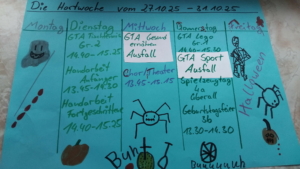 Die Hortwoche vom 27.10.25 - 31.10.25
Montag
Dienstag
GTA
Gr. 1
14.40-15.25
Handarbeit
Anfänger
13.45-14.30
Handarbeit
Fortgeschrittene
14.40-15.25
Mittwoch
GTA Gesund
ernähren
Ausfall
Chor/Theater
13.45-
Donnerstag
GTA
Gr. 1
GTA Sport
Ausfall
Spielzeugtag
überall
Geburtstagsfeier
13.30-14.30
Halloween
Buh